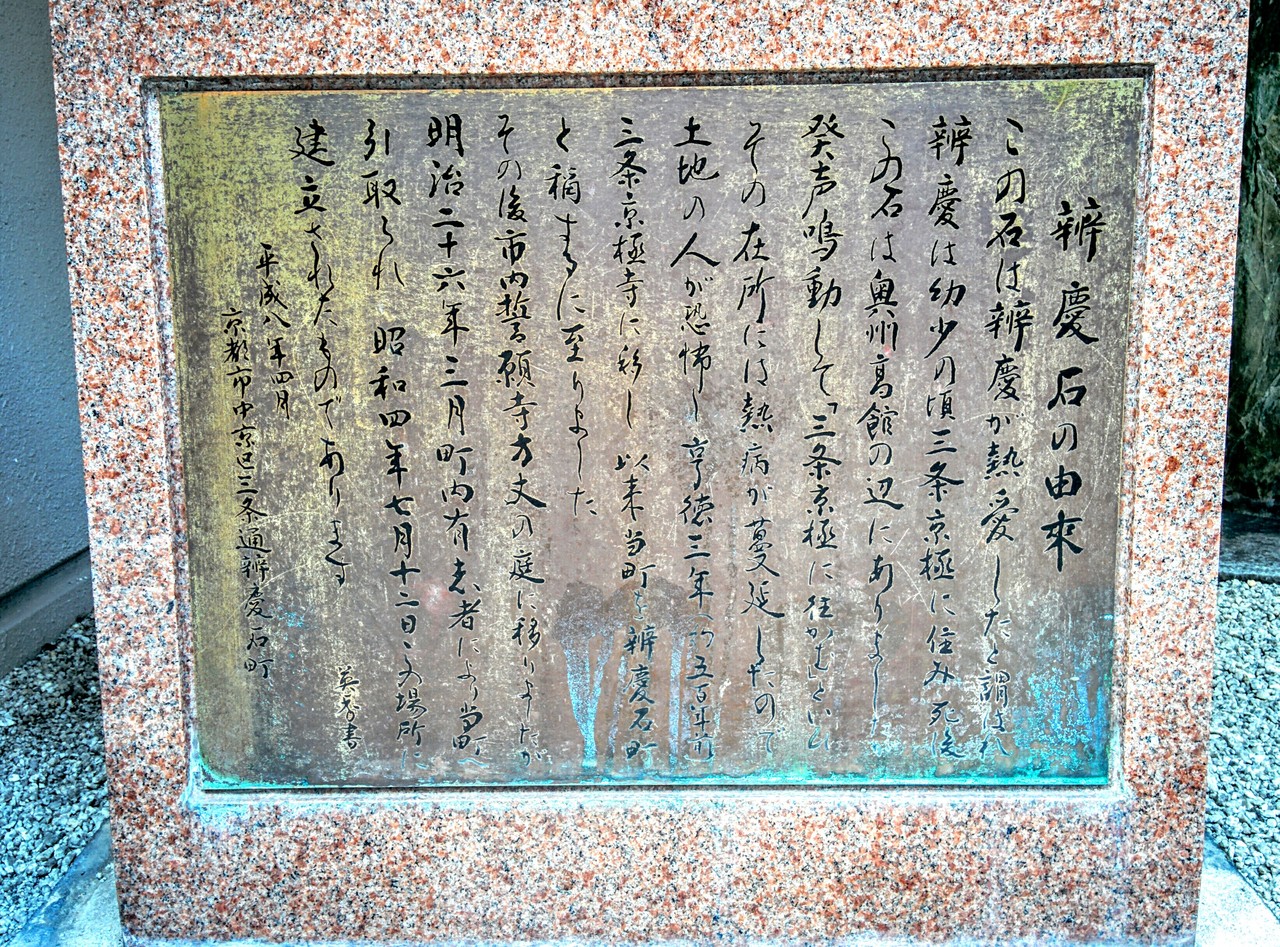 辨慶石の由來
この石は辨慶が熱愛したと謂はれ
辨慶は幼少の頃三条京極に住み死後
この石は奥州高館の辺にありました
発声鳴動して「三条京極に往かむ」といひ
その在所には熱病が蔓延したので
土地の人が恐怖し享徳三年(約五百年前
三条京極寺に移し 以来当町を辨慶石町
と稱するに至りました
その後市内誓願寺方丈の庭に移りましたが
明治二十六年三月町内有志者により当町へ
引取られ 昭和四年七月十二日この場所に
建立されたものであります
平成八年四月
京都市中京区三条通辨慶石町
書